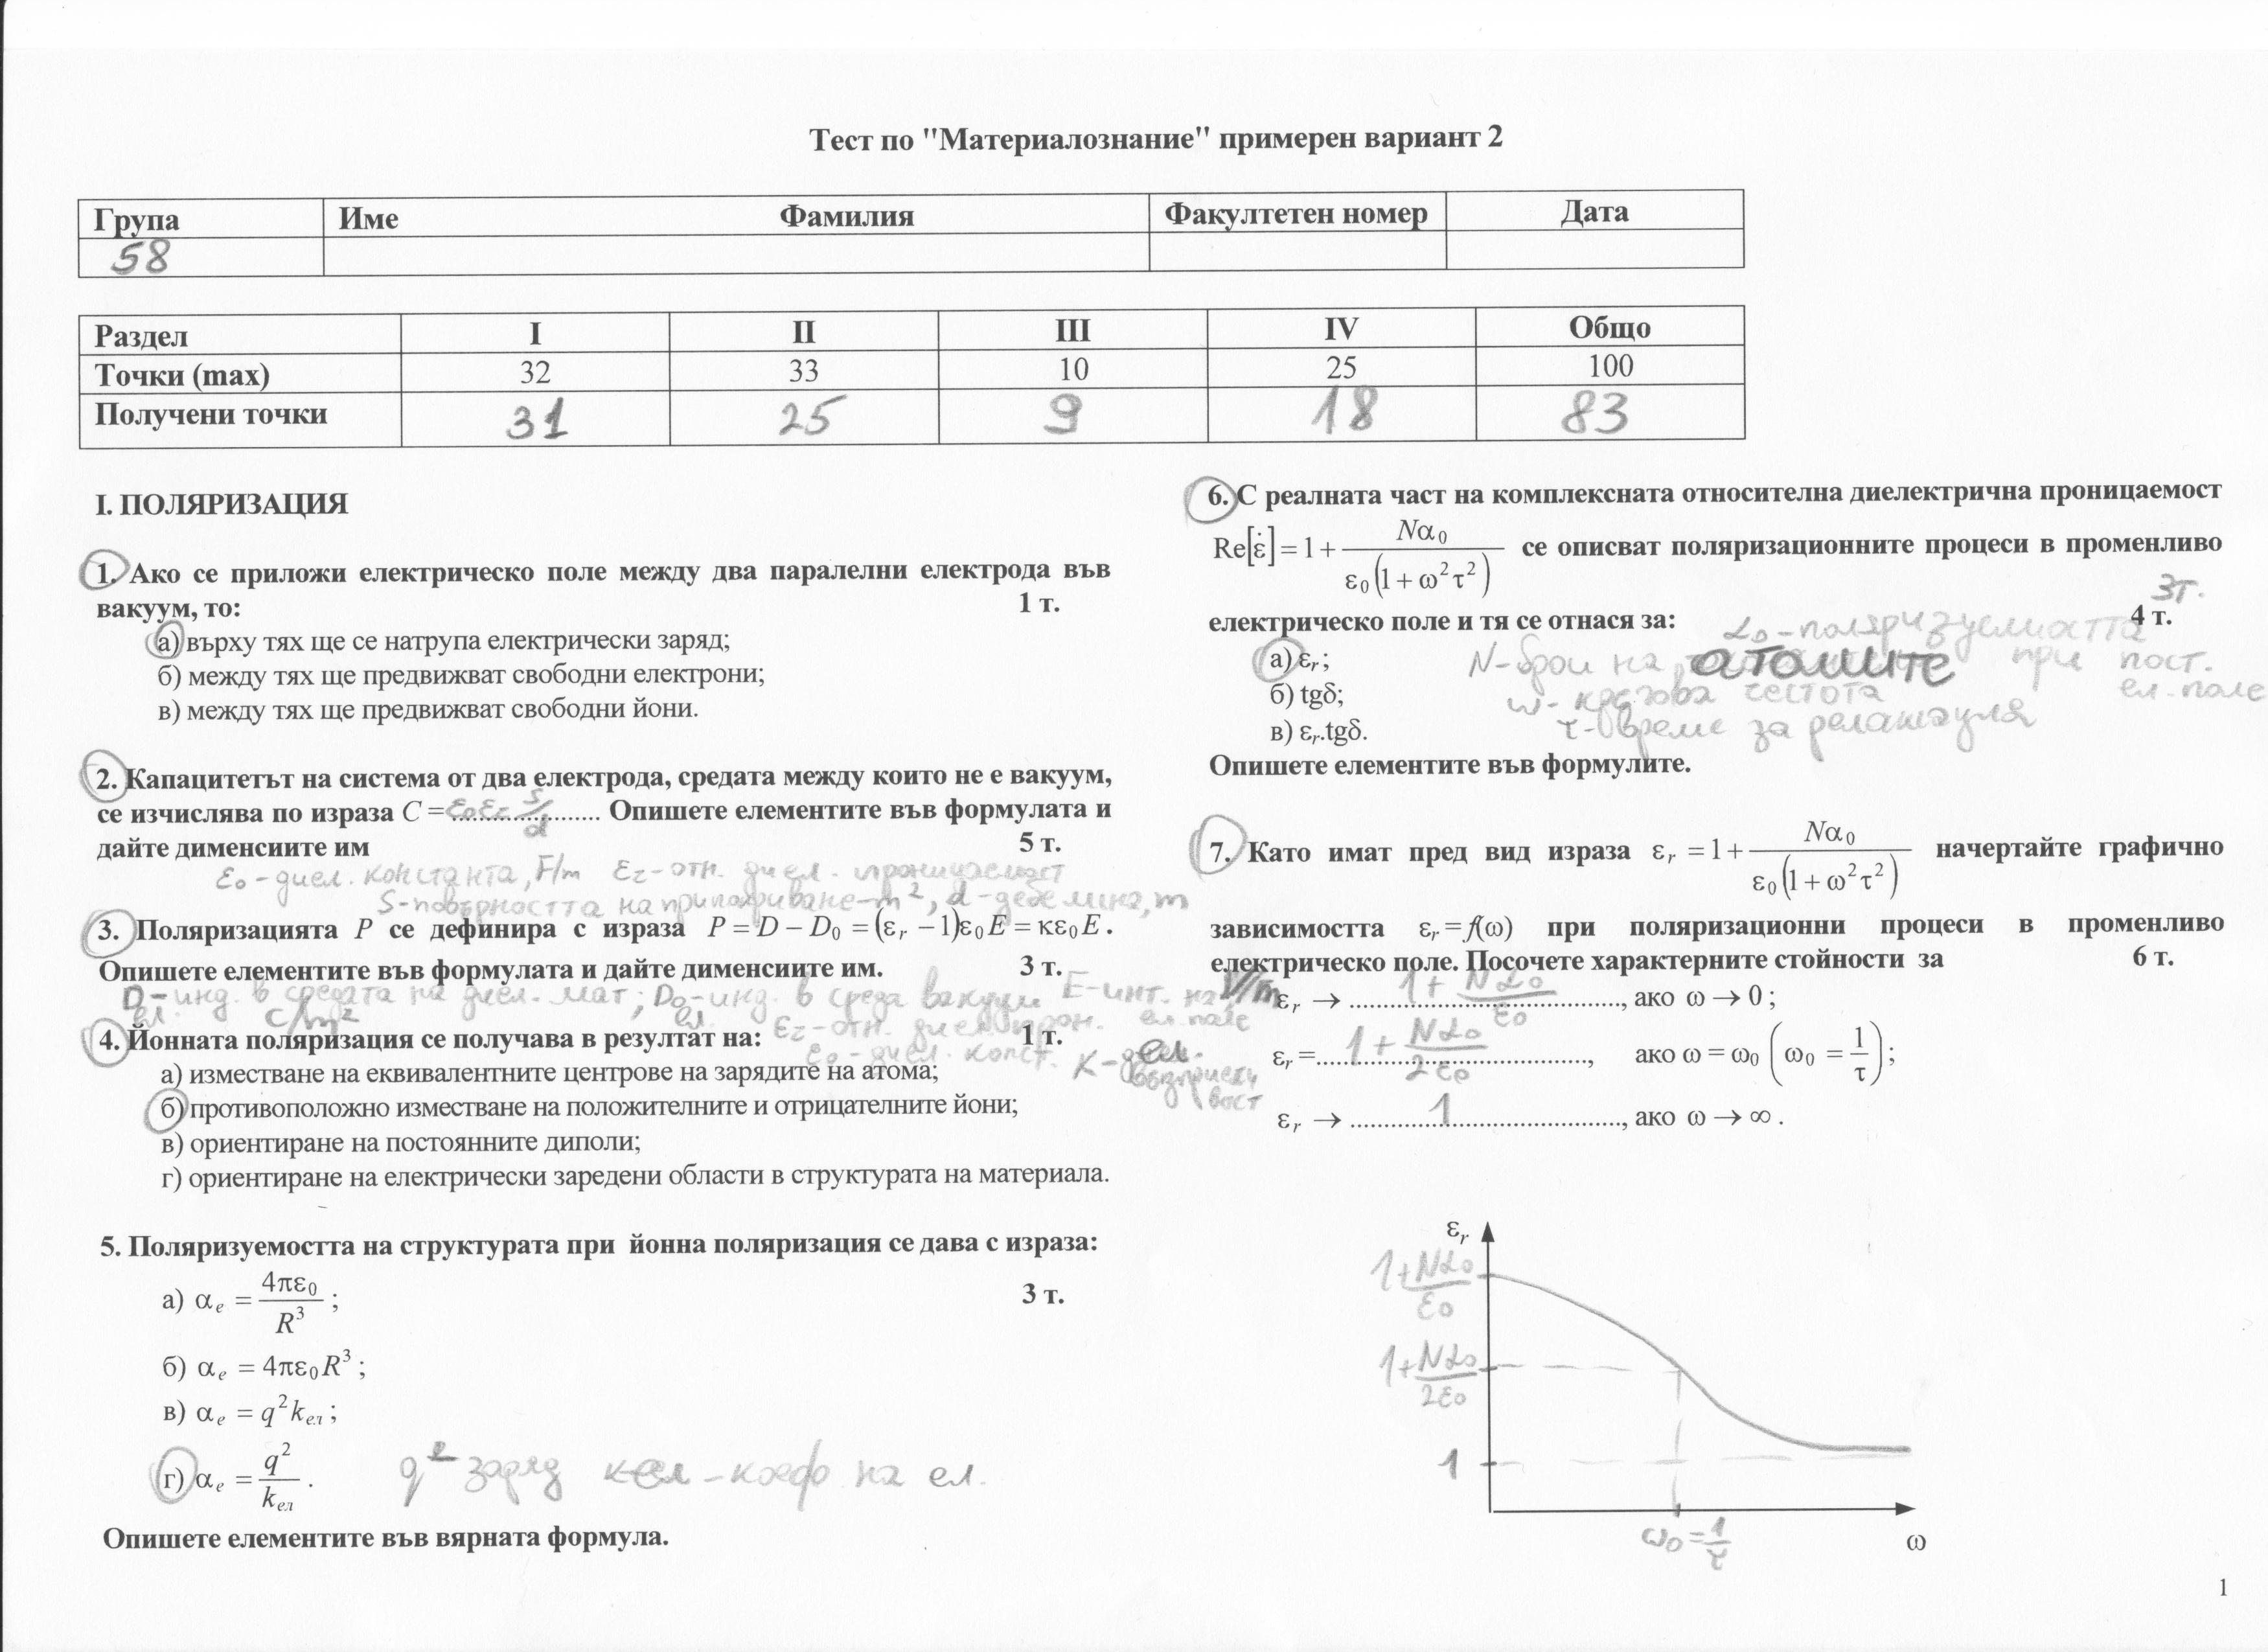 Тест по "Материалознание" примерен вариант 2
Група Име Фамилия Факултетен номер Дата
58
Раздел I II III IV Общо
Точки (max) 32 33 10 25 100
Получени точки 31 25 9 18 83
I. ПОЛЯРИЗАЦИЯ
1. Ако се приложи електрическо поле между два паралелни електрода във
вакуум, то: 1 т.
а) върху тях ще се натрупа електрически заряд;
б) между тях ще предвижват свободни електрони;
в) между тях ще предвижват свободни йони.
2. Капацитетът на система от два електрода, средата между които не е вакуум,
се изчислява по израза C = ε₀εr S/d Опишете елементите във формулата и
дайте дименсиите им 5 т.
ε₀ - диел. константа, F/m εr - отн. диел. проницаемост
S - повърността на припокриване - m², d - дебелина, m
3. Поляризацията P се дефинира с израза P = D − D₀ = (εr − 1)ε₀E = κε₀E.
Опишете елементите във формулата и дайте дименсиите им. 3 т.
D - инд. в средата на диел. мат; D₀ - инд. в среда вакуум E - инт. на V/m
ел. c/m² ел. εr - отн. диел. прон. ел. поле
4. Йонната поляризация се получава в резултат на: 1 т.
ε₀ - диел. конст. K - диел.
а) изместване на еквивалентните центрове на зарядите на атома;
б) противоположно изместване на положителните и отрицателните йони;
в) ориентиране на постоянните диполи;
г) ориентиране на електрически заредени области в структурата на материала.
5. Поляризуемостта на структурата при йонна поляризация се дава с израза:
а) αe = 4πε₀/R³ ; 3 т.
б) αe = 4πε₀R³ ;
в) αe = q²kел ;
г) αe = q²/kел . q² - заряд кел - коеф на ел.
Опишете елементите във вярната формула.
6. С реалната част на комплексната относителна диелектрична проницаемост
Re[ε̇] = 1 + Nα₀/(ε₀(1 + ω²τ²)) се описват поляризационните процеси в променливо
3т.
електрическо поле и тя се отнася за: 4 т.
α₀ - поляризуемостта
а) εr; N - брой на атомите при пост.
ел. поле
б) tgδ; ω - кръгова честота
в) εr.tgδ. τ - време за релаксация
Опишете елементите във формулите.
7. Като имат пред вид израза εr = 1 + Nα₀/(ε₀(1 + ω²τ²)) начертайте графично
зависимостта εr = f(ω) при поляризационни процеси в променливо
електрическо поле. Посочете характерните стойности за 6 т.
εr → 1 + Nα₀/ε₀, ако ω → 0 ;
εr = 1 + Nα₀/2ε₀, ако ω = ω₀ (ω₀ = 1/τ);
εr → 1, ако ω → ∞ .
εr
1 + Nα₀/ε₀
1 + Nα₀/2ε₀
1
ω₀ = 1/τ
ω
1